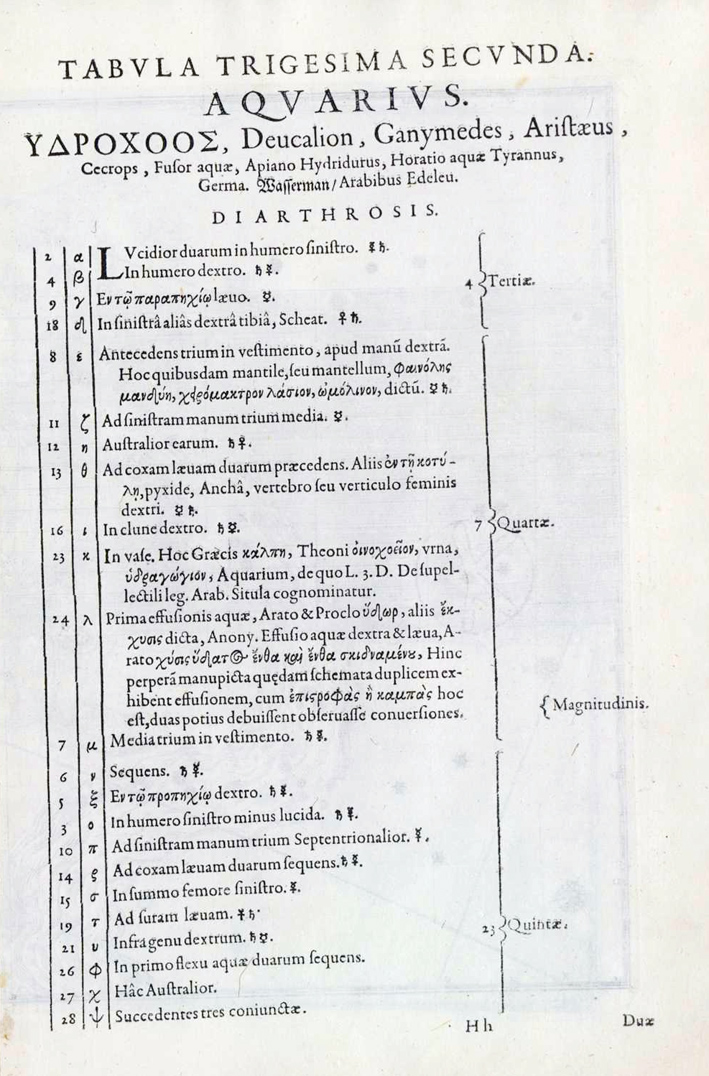 TABVLA TRIGESIMA SECVNDA.
AQVARIVS.
ΥΔΡΟΧΟΟΣ, Deucalion, Ganymedes, Aristæus,
Cecrops, Fusor aquæ, Apiano Hydridurus, Horatio aquæ Tyrannus,
Germa. Wasserman/Arabibus Edeleu.
DIARTHROSIS.
2 α LVcidior duarum in humero sinistro. ☿ ♄.
4 β In humero dextro. ♄ ☿.
4 Tertiæ.
9 γ Εν τῷ παραπηχίῳ læuo. ☿.
18 δ In sinistrâ aliâs dextrâ tibiâ, Scheat. ♀ ♄.
8 ε Antecedens trium in vestimento, apud manũ dextrã.
Hoc quibusdam mantile, seu mantellum, φαινόλης
μανδύη, χειρόμακτρον λάσιον, ὠμόλινον, dictũ. ☿ ♄.
11 ζ Ad sinistram manum trium media. ☿.
12 η Australior earum. ♄ ♀.
13 θ Ad coxam læuam duarum præcedens. Aliis ἐν τῇ κοτύ-
λῃ, pyxide, Anchâ, vertebro seu verticulo feminis
dextri. ☿ ♄.
16 ι In clune dextro. ♄ ☿.
7 Quartæ.
23 κ In vase. Hoc Græcis κάλπη, Theoni οἰνοχοεῖον, vrna,
ὑδραγώγιον, Aquarium, de quo L. 3. D. De supel-
lectili leg. Arab. Situla cognominatur.
24 λ Prima effusionis aquæ, Arato & Proclo ὕδωρ, aliis ἔκ-
χυσις dicta, Anony. Effusio aquæ dextra & læua, A-
rato χύσις ὕδατος ἔνθα καὶ ἔνθα σκιδναμένου, Hinc
perperã manu picta quędam schemata duplicem ex-
hibent effusionem, cum ἐπιστροφὰς ἢ καμπὰς hoc
est, duas potius debuissent obseruasse conuersiones.
{Magnitudinis.
7 μ Media trium in vestimento. ♄ ☿.
6 ν Sequens. ♄ ☿.
5 ξ Εν τῷ προπηχίῳ dextro. ♄ ☿.
3 ο In humero sinistro minus lucida. ♄ ☿.
10 π Ad sinistram manum trium Septentrionalior. ☿.
14 ρ Ad coxam læuam duarum sequens. ♄ ☿.
15 σ In summo femore sinistro. ☿.
19 τ Ad suram læuam. ☿ ♄.
23 Quintæ.
21 υ Infra genu dextrum. ♄ ☿.
26 φ In primo flexu aquæ duarum sequens.
27 χ Hâc Australior.
28 ψ Succedentes tres coniunctæ.
Hh
Duæ